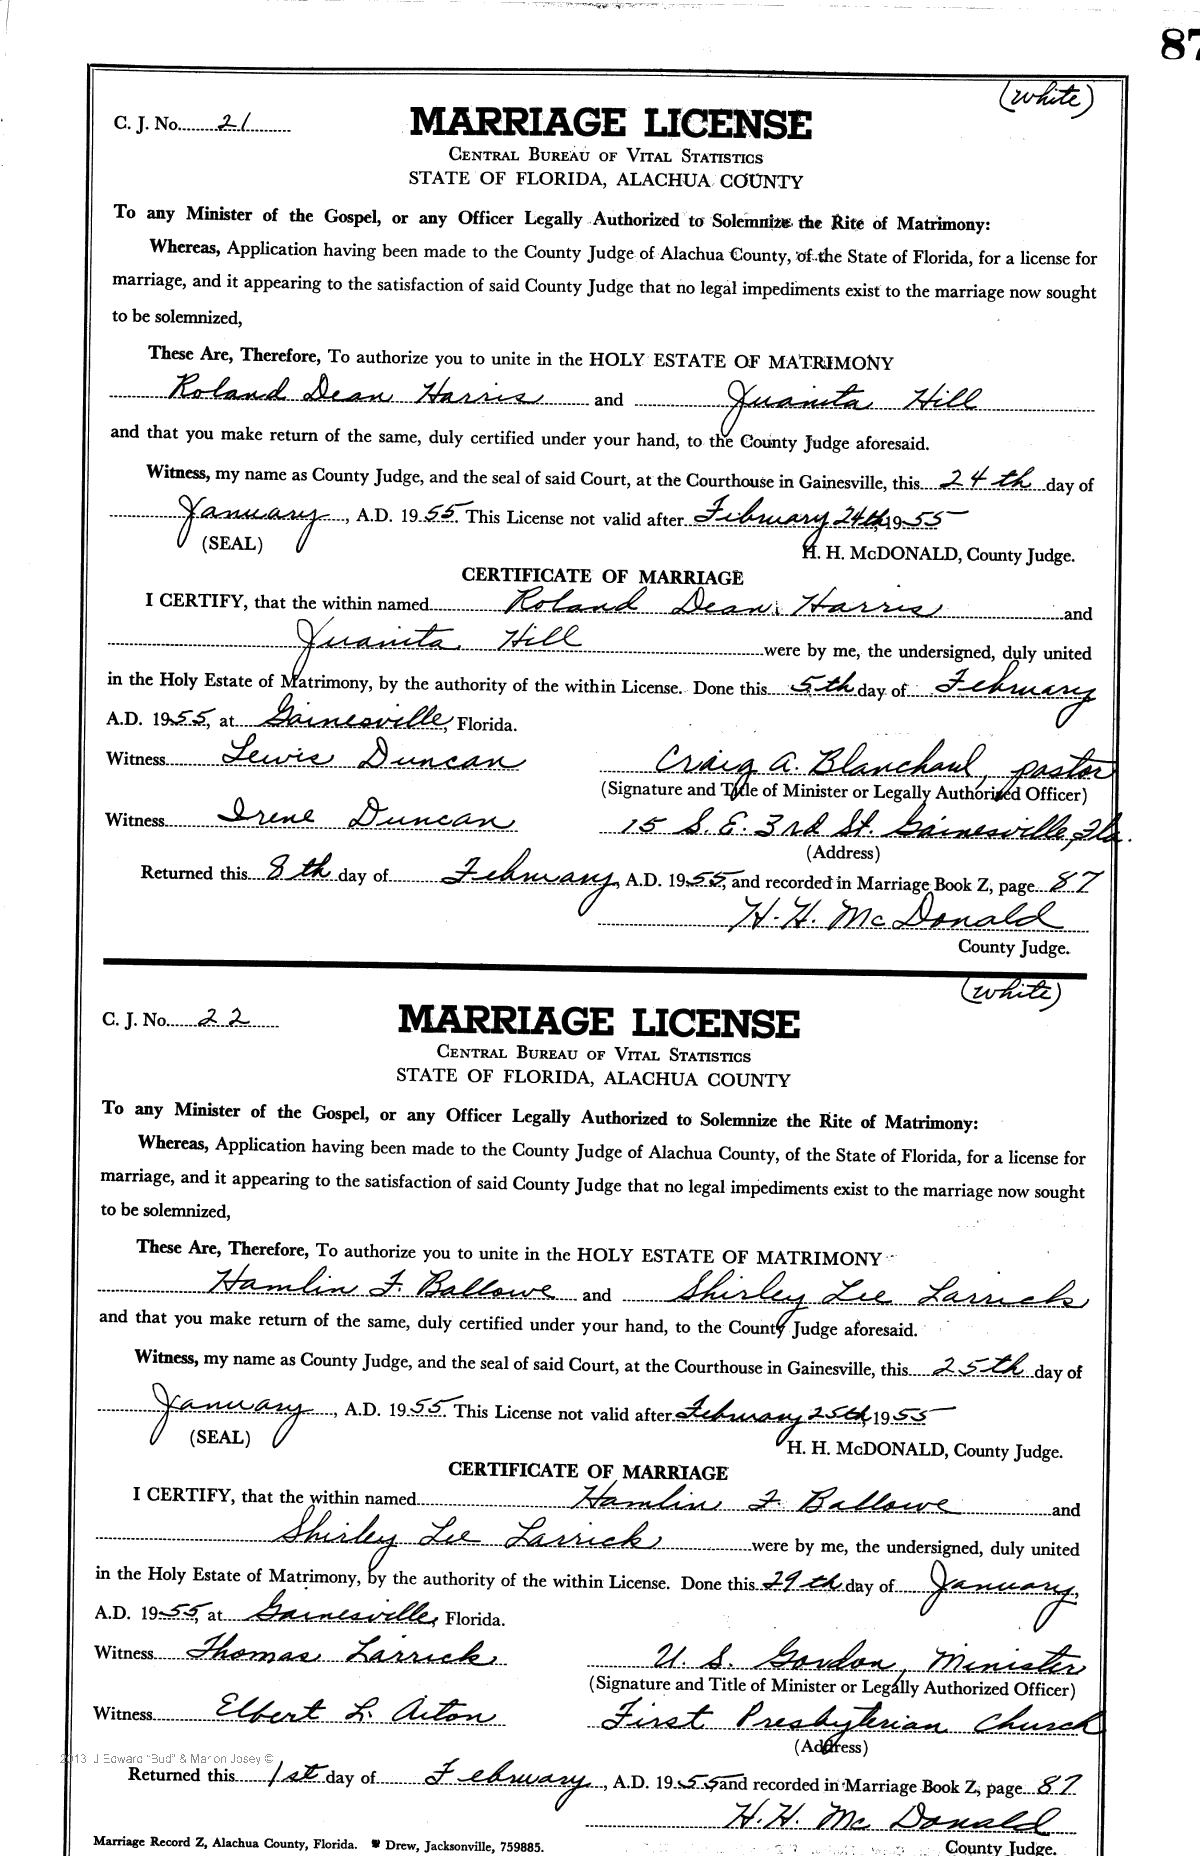 87
(White)
C. J. No. 21
MARRIAGE LICENSE
CENTRAL BUREAU OF VITAL STATISTICS
STATE OF FLORIDA, ALACHUA COUNTY
To any Minister of the Gospel, or any Officer Legally Authorized to Solemnize the Rite of Matrimony:
Whereas, Application having been made to the County Judge of Alachua County, of the State of Florida, for a license for
marriage, and it appearing to the satisfaction of said County Judge that no legal impediments exist to the marriage now sought
to be solemnized,
These Are, Therefore, To authorize you to unite in the HOLY ESTATE OF MATRIMONY
Roland Dean Harris and Juanita Hill
and that you make return of the same, duly certified under your hand, to the County Judge aforesaid.
Witness, my name as County Judge, and the seal of said Court, at the Courthouse in Gainesville, this 24th day of
January, A.D. 1955. This License not valid after February 24th, 1955
(SEAL) H. H. McDONALD, County Judge.
CERTIFICATE OF MARRIAGE
I CERTIFY, that the within named Roland Dean Harris and
Juanita Hill were by me, the undersigned, duly united
in the Holy Estate of Matrimony, by the authority of the within License. Done this 5th day of February
A.D. 1955, at Gainesville, Florida.
Witness Lewis Duncan Craig A. Blanchard, pastor
(Signature and Title of Minister or Legally Authorized Officer)
Witness Irene Duncan 15 S. E. 3rd St. Gainesville, Fla.
(Address)
Returned this 8th day of February, A.D. 1955, and recorded in Marriage Book Z, page 87
H. H. McDonald
County Judge.
(White)
C. J. No. 22
MARRIAGE LICENSE
CENTRAL BUREAU OF VITAL STATISTICS
STATE OF FLORIDA, ALACHUA COUNTY
To any Minister of the Gospel, or any Officer Legally Authorized to Solemnize the Rite of Matrimony:
Whereas, Application having been made to the County Judge of Alachua County, of the State of Florida, for a license for
marriage, and it appearing to the satisfaction of said County Judge that no legal impediments exist to the marriage now sought
to be solemnized,
These Are, Therefore, To authorize you to unite in the HOLY ESTATE OF MATRIMONY
Hamlin F. Ballowe and Shirley Lee Larrick
and that you make return of the same, duly certified under your hand, to the County Judge aforesaid.
Witness, my name as County Judge, and the seal of said Court, at the Courthouse in Gainesville, this 25th day of
January, A.D. 1955. This License not valid after February 25th, 1955
(SEAL) H. H. McDONALD, County Judge.
CERTIFICATE OF MARRIAGE
I CERTIFY, that the within named Hamlin F Ballowe and
Shirley Lee Larrick were by me, the undersigned, duly united
in the Holy Estate of Matrimony, by the authority of the within License. Done this 29th day of January,
A.D. 1955, at Gainesville, Florida.
Witness Thomas Larrick U. S. Gordon, Minister
(Signature and Title of Minister or Legally Authorized Officer)
Witness Elbert L. Aiton First Presbyterian Church
(Address)
2013 J Edward "Bud" & Marion Josey ©
Returned this 1st day of February, A.D. 1955 and recorded in Marriage Book Z, page 87
H. H. McDonald
Marriage Record Z, Alachua County, Florida. Drew, Jacksonville, 759885. County Judge.